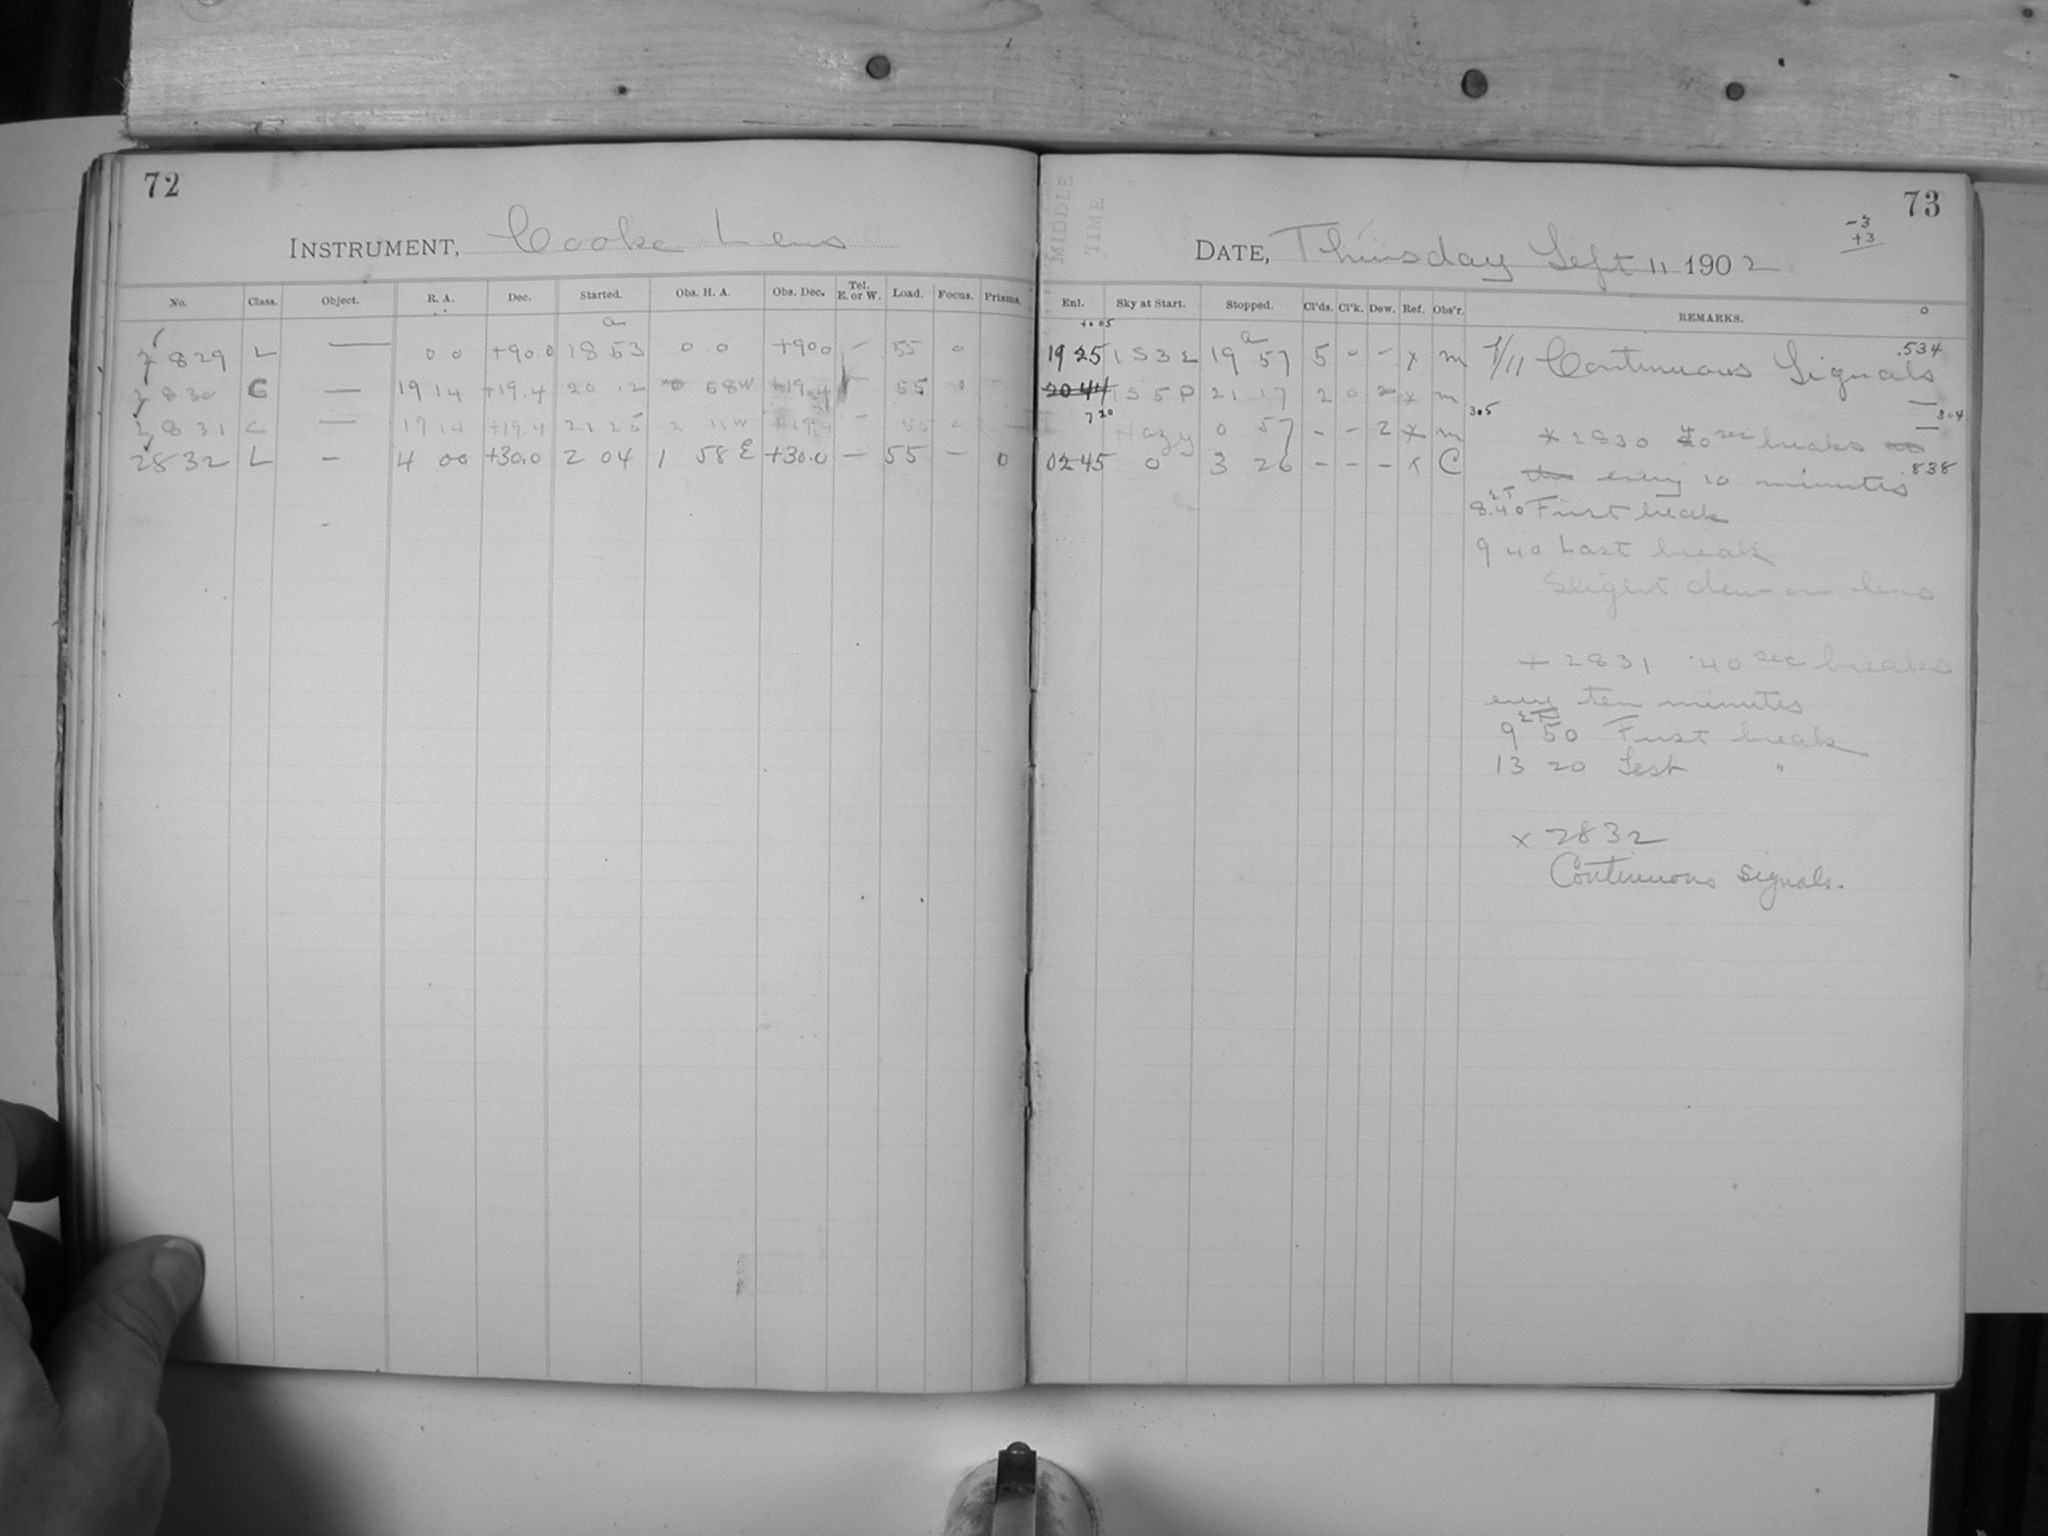 72
INSTRUMENT, Cooke Lens
No. Class. Object. R. A. Dec. Started. Obs. H. A. Obs. Dec. Tel. E. or W. Load. Focus. Prisms.
2829 L — 0 0 +90.0 18 53 0.0 +90.0 — 55 0
2830 C — 19 14 +19.4 20 12 0 58W +19.4 — 55 0 —
2831 C — 19 14 +19.4 21 25 2 11W +19.4 — 55 0 —
2832 L — 4 00 +30.0 2 04 1 58 E +30.0 — 55 — 0
73
MIDDLE
TIME
-3
+3
DATE, Thursday Sept 11 1902
Enl. Sky at Start. Stopped. Cl'ds. Cl'k. Dew. Ref. Obs'r. REMARKS.
0
19 25 1 S 3 L 19 57 5 0 - x m
20 44 1 S 5 P 21 17 2 0 2 x m
Hazy 0 57 - - 2 x m
02 45 0 3 26 - - - x C
Continuous Signals .534
305
304
x 2830 40 sec breaks
every 10 minutes .838
8.40 First break
9 40 Last break
Slight dew on lens
x 2831 40 sec breaks
every ten minutes
9 50 First break
13 20 Last "
x 2832
Continuous signals.